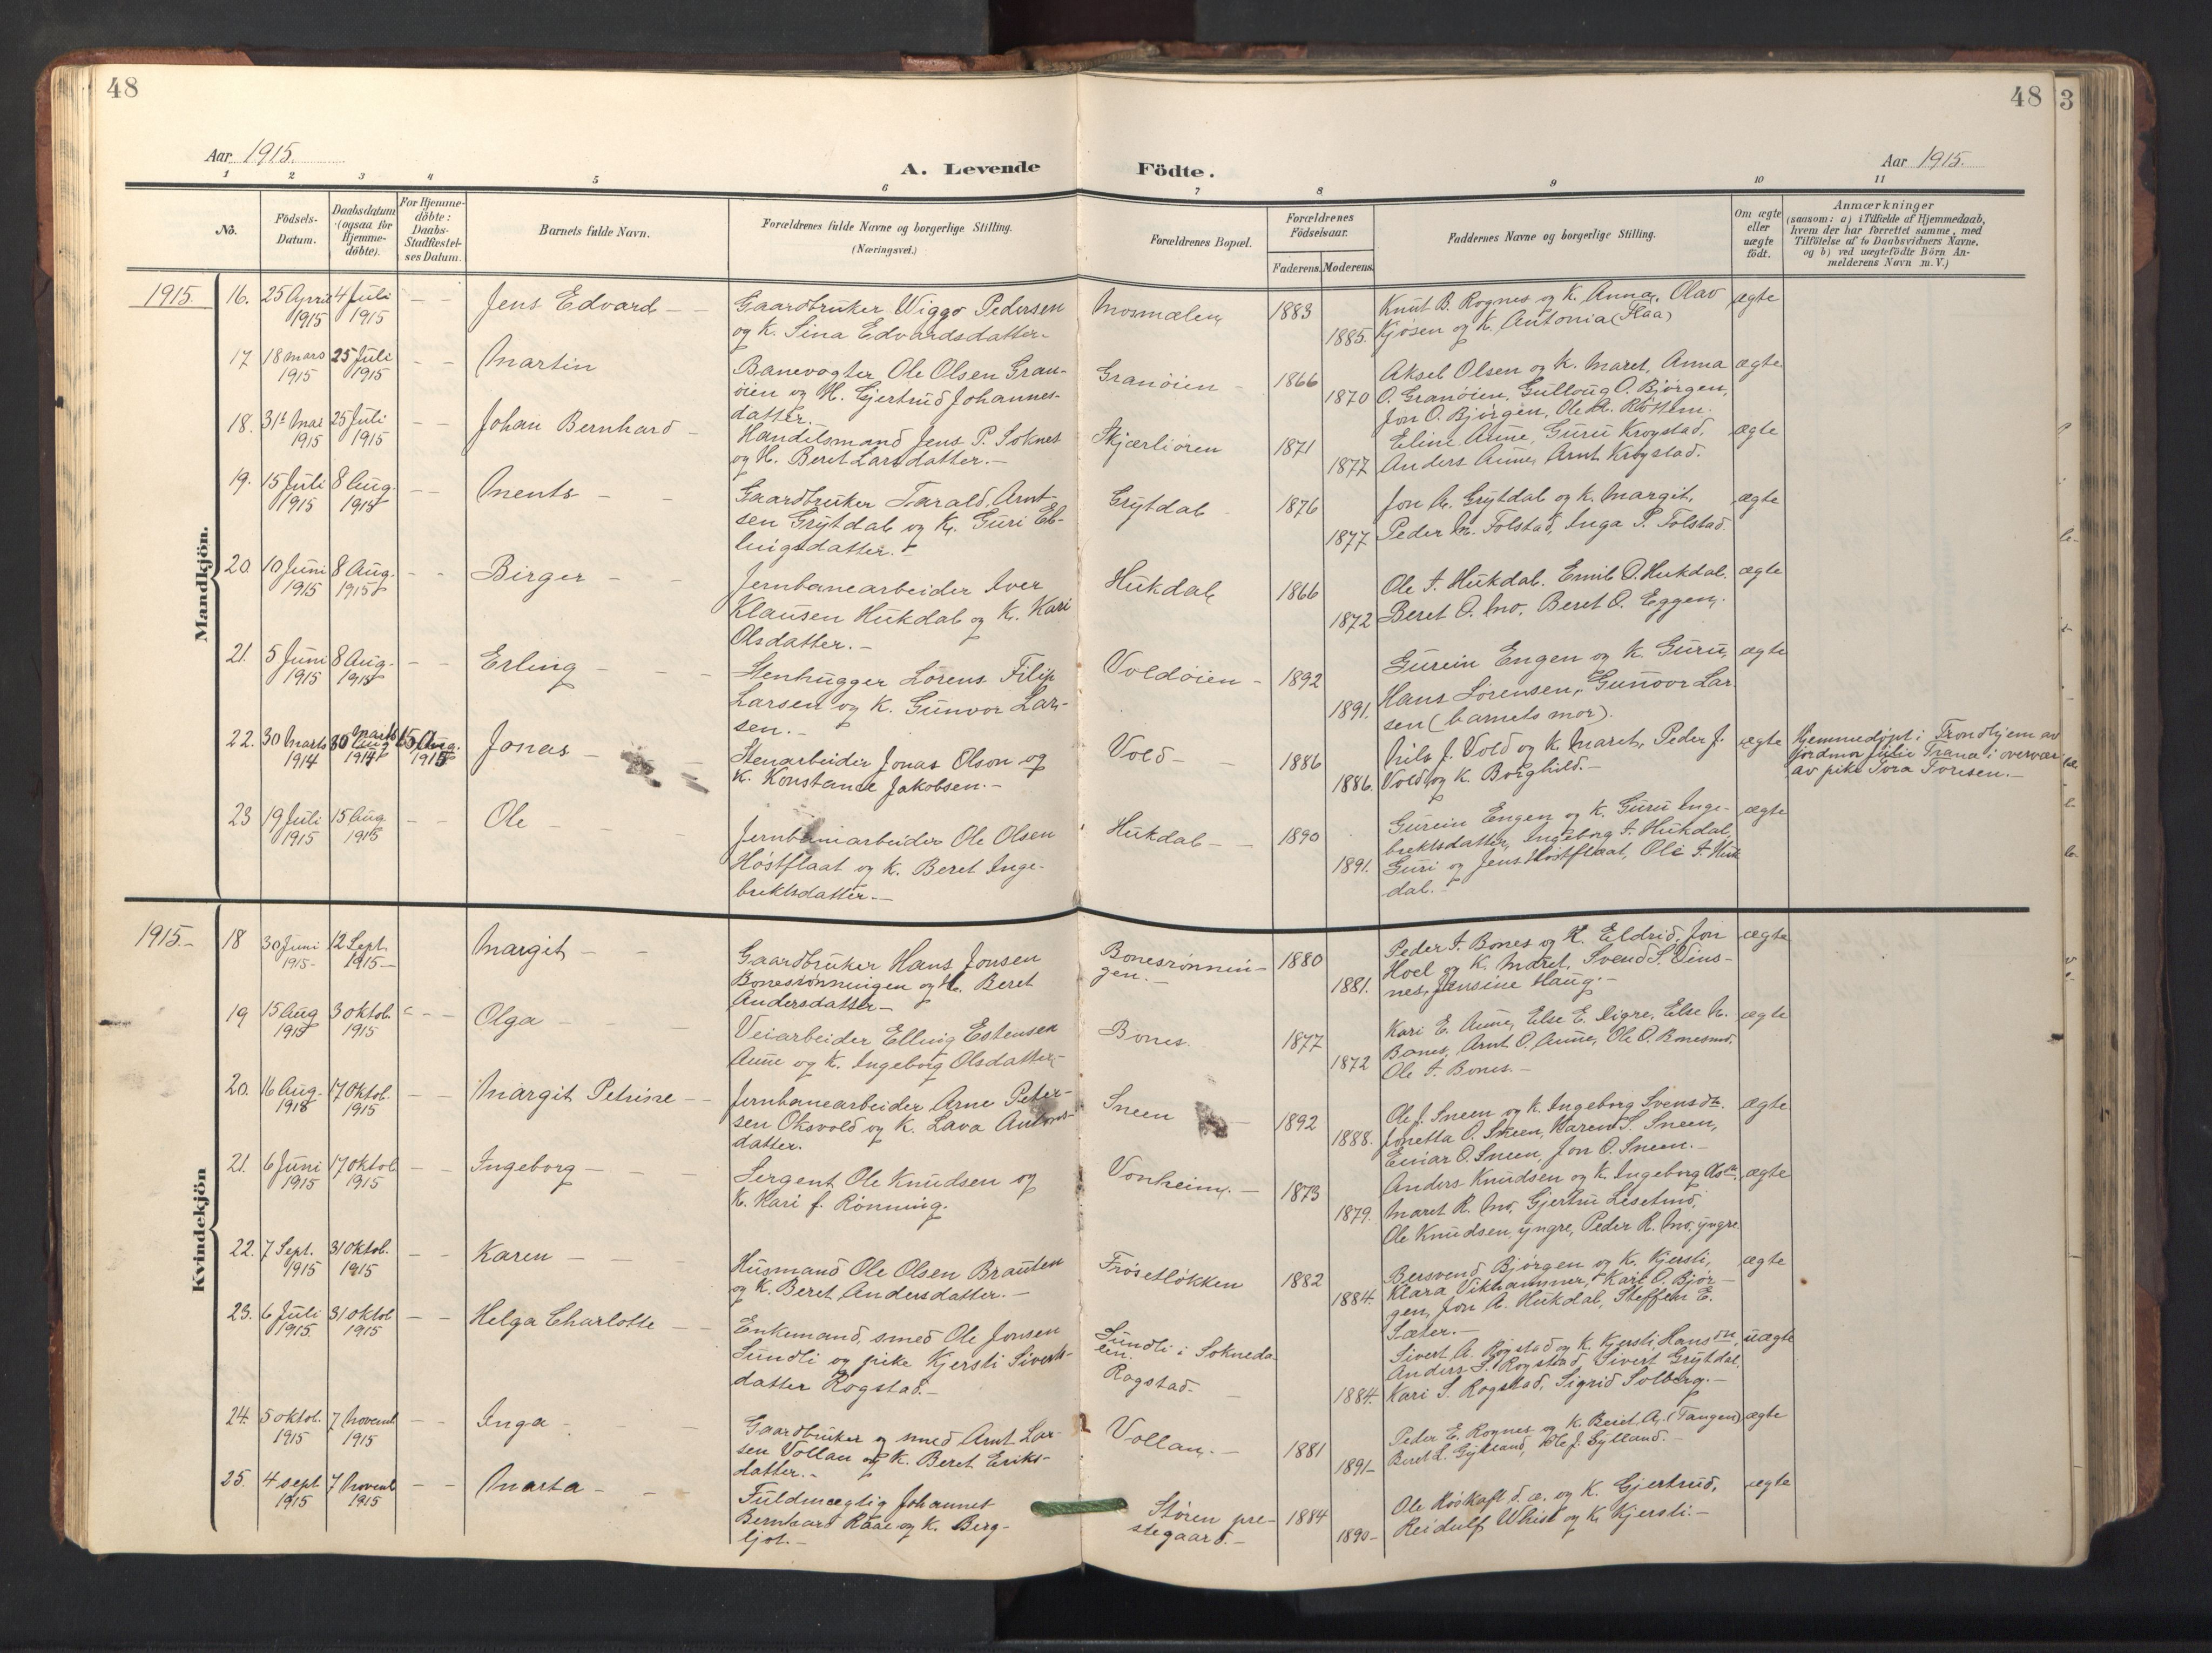 48
48
3
Aar 1915.
A. Levende
Födte.
Aar 1915.
1 2 3 4 5 6 7 8 9 10 11
No.
Födsels-
Datum.
Daabsdatum
(ogsaa for
Hjemme-
döbte).
For Hjemme-
döbte:
Daabs-
Stadfæstel-
ses Datum.
Barnets fulde Navn.
Forældrenes fulde Navne og borgerlige Stilling.
(Næringsvei.)
Forældrenes Bopæl.
Forældrenes
Födselsaar.
Faderens. Moderens.
Faddernes Navne og borgerlige Stilling.
Om ægte
eller
uægte
födt.
Anmærkninger
(saasom: a) i Tilfælde af Hjemmedaab,
hvem der har forrettet samme, med
Tilföielse af to Daabsvidners Navne,
og b) ved uægtefödte Börn An-
melderens Navn m. V.)
Mandkjön.
1915.
16. 25 April 1915 4 Juli 1915 - - Jens Edvard - -
Gaardbruker Wiggo Pedersen
og K. Sina Edvardsdatter.
Mosmælen 1883 1885.
Knut B. Rognes og K. Anna, Olav
Kjøsen og K. Antonia (Flaa)
ægte
17 18 mars 1915 25 Juli 1915 - - Martin
Banevogter Ole Olsen Gran-
øien og K. Gjertrud Johannes-
datter.
Granøien - 1866 1870
Aksel Olsen og K. Maret, Anna
O. Granøien, Gulloug O. Bjørgen,
Jon O. Bjørgen, Ole A. Røttem.
ægte
18. 31te Mai 1915 25 Juli 1915 - - Johan Bernhard -
Handelsmand Jens P. Soknes
og K. Beret Larsdatter. -
Skjærliøren 1871 1877
Eline Aune, Guru Krogstad,
Anders Aune, Arnt Krogstad.
ægte
19. 15 Juli 1915 8 Aug. 1915 - - Ments - -
Gaardbruker Tarald Arnt-
sen Grytdal og K. Guri El-
lingsdatter. -
Grytdal 1876 1877
Jon A. Grytdal og K. Margit,
Peder M. Folstad, Inga P. Folstad.
ægte
20. 10 Juni 1915 8 Aug. 1915 - - Birger - -
Jernbanearbeider Iver
Klausen Hukdal og K. Kari
Olsdatter. -
Hukdal 1866 1872
Ole I. Hukdal. Emil O. Hukdal.
Beret O. Mo, Beret O. Eggen.
ægte
21. 5 Juni 1915 8 Aug. 1915 - - Erling - -
Stenhugger Lorens Filip
Larsen og K. Gunvor Lar-
sen. -
Voldøien - 1892 1891.
Gurein Engen og K. Guru,
Hans Lorensen, Gunvor Lar-
sen (barnets mor).
ægte
22. 30 Marts 1914 30 marts 1914 15 Aug. 1915 Jonas -
Stenarbeider Jonas Olson og
K. Konstance Jakobsen. -
Vold - - 1886 1886.
Nils J. Vold og K. Maret, Peder J.
Vold og K. Borghild. -
ægte
Hjemmedøpt i Trondhjem av
jordmor Julie Trana i overvær
av pike Tora Torisen. -
23 19 Juli 1915 15 Aug 1915 - - Ole - -
Jernbanearbeider Ole Olsen
Høstflaat og K. Beret Inge-
brektsdatter. -
Hukdal - - 1890 1891.
Gurein Engen og K. Guru Inge-
brektsdatter, Ingeborg I. Hukdal,
Guri og Jens Høstflaat, Ole I. Huk-
dal. -
ægte
Kvindekjön
1915. -
18 30 Juni 1915 - 12 Sept. 1915 - Margit - -
Gaardbruker Hans Jonsen
Bonesrønningen og K. Beret
Andersdatter -
Bonesrønnin-
gen. - 1880 1881.
Peder I. Bones og K. Eldrid, Jon
Hoel og K. Maret, Svend S. Vins-
nes, Jensine Haug. -
ægte
19 15 Aug 1915 3 oktob. 1915 - - Olga - -
Veiarbeider Elling Estensen
Aune og K. Ingeborg Olsdatter,
Bones. 1877 1872
Kari E. Aune, Else E. Digre, Else N.
Bones, Arnt O. Aune, Ole O. Bonesmo,
Ole I. Bones. -
ægte
20. 16 Aug. 1915 17 Oktob. 1915 - - Margit Petrine - -
Jernbanearbeider Arne Peter-
sen Oksvold og K. Lava Antons-
datter.
Sneen - 1892 1888.
Ole J. Sneen og K. Ingeborg Svensdtr.
Jonetta O. Sneen, Karen S. Sneen,
Einar O. Sneen, Jon O. Sneen. -
ægte
21. 6 Juni 1915 17 oktob 1915 - - Ingeborg - -
Sergent Ole Knudsen og
K. Kari f. Rønning.
Vonheim. - 1873 1879.
Anders Knudsen og K. Ingeborg Olsdtr.
Maret R. Mo, Gjertru Lisetmo,
Ole Knudsen yngre, Peder R. Mo, yngre.
ægte
22. 7 Sept. 1915 31 oktob. 1915 - - Karen - -
Husmand Ole Olsen Brauten
og K. Beret Andersdatter. -
Frøsetløkken 1882 1884.
Bersvend Bjørgen og K. Kjersti,
Klara Vikhammer, Kari O. Bjør-
gen, Jon A. Hukdal, Steffen E.
Sæter. -
ægte
23. 6 Juli 1915 31 oktob 1915 - - Helga Charlotte - -
Enkemand, smed Ole Jonsen
Sundli og pike Kjersti Siverts-
datter Rogstad. -
Sundli i Sokneda-
len.
Rogstad. - 1884.
Sivert A. Rogstad og K. Kjersti Hansdtr,
Anders S. Rogstad, Sivert Grytdal,
Kari S. Rogstad, Sigrid Solberg. -
uægte
24. 5 oktob. 1915 7 Novemb 1915 - - Inga - -
Gaardbruker og smed Arnt Lar-
sen Vollan og K. Beret Eriks-
datter. -
Vollan. - 1881 1891 -
Peder E. Rognes og K. Beret A. (Tangen)
Beret L. Gylland, Ole J. Gylland. -
ægte
25. 4 sept 1915 7 Novemb 1915 - - Marta - -
Fuldmægtig Johannes
Bernhard Raae og K. Berg-
ljot. -
Støren pre-
stegaard. - 1884 1890 -
Ole Høskaft d. æ. og K. Gjertrud,
Reidulf Whist og K. Kjersti. -
ægte